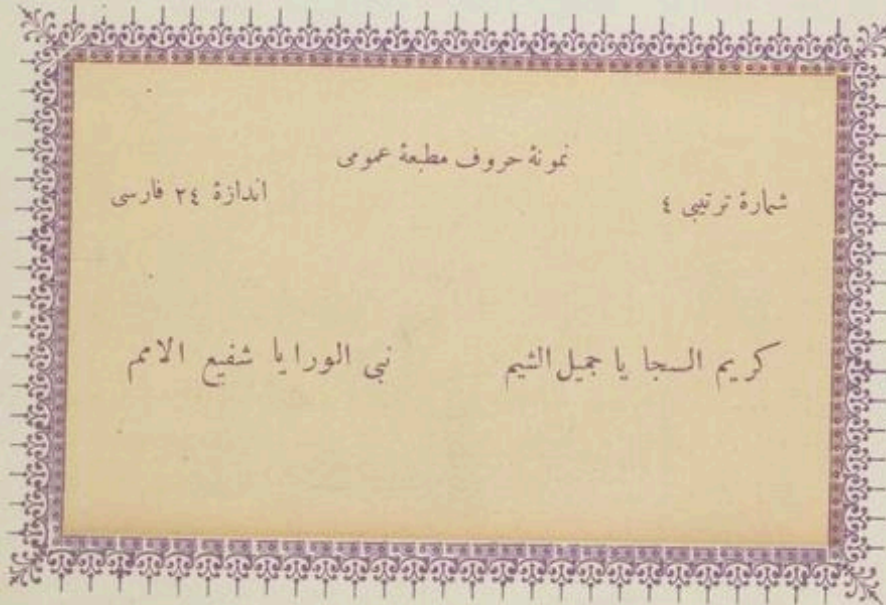 نمونهٔ حروف مطبعهٔ عمومی
شمارهٔ ترتیبی ٤ اندازهٔ ٢٤ فارسی
کریم السجا یا جمیل الشیم نبی الورا یا شفیع الامم